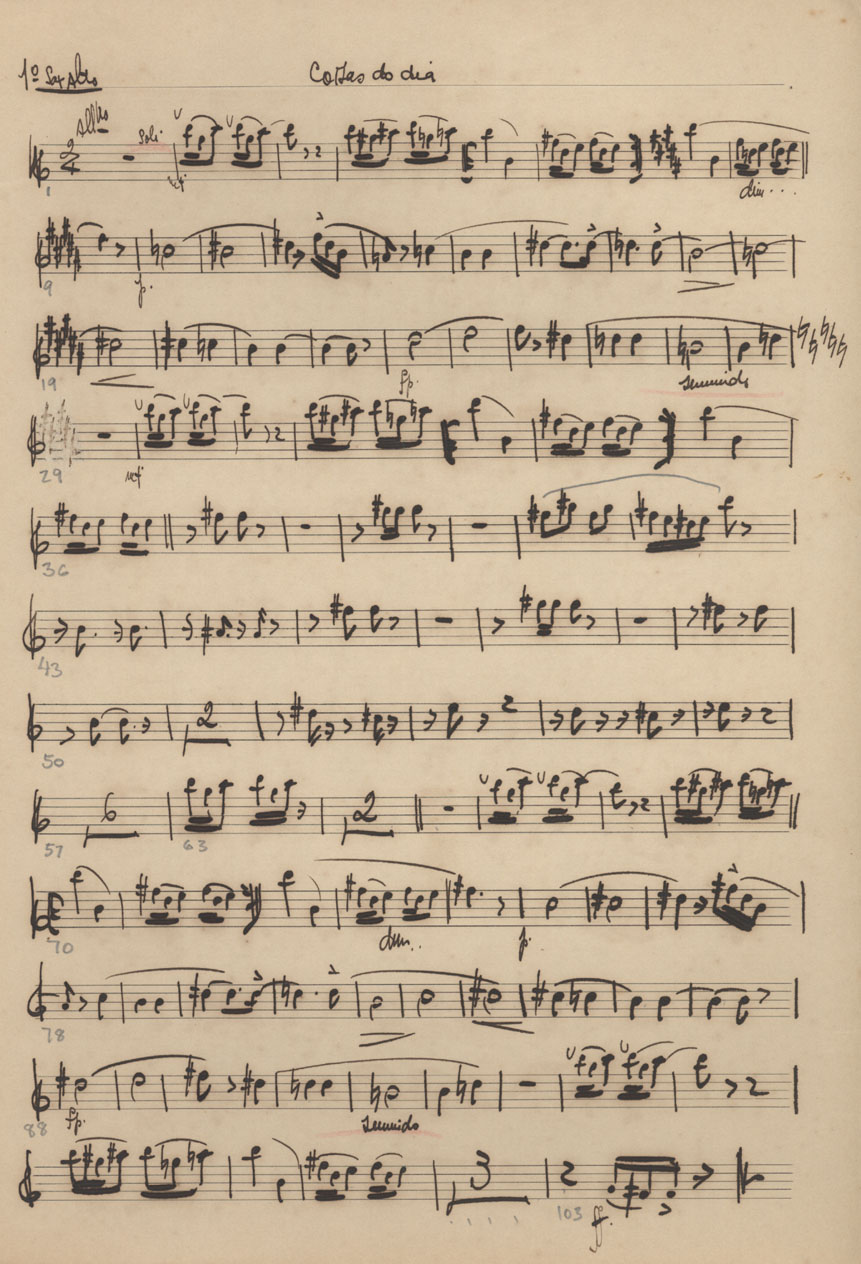 1º Sax Alto Coisas do dia
Allº Soli
2
4
mf
1
dim...
9
p.
19
fp.
29
mf
36
43
2
50
6 2
57 63
dim.. p.
70
78
88 fp.
3
103 ff.